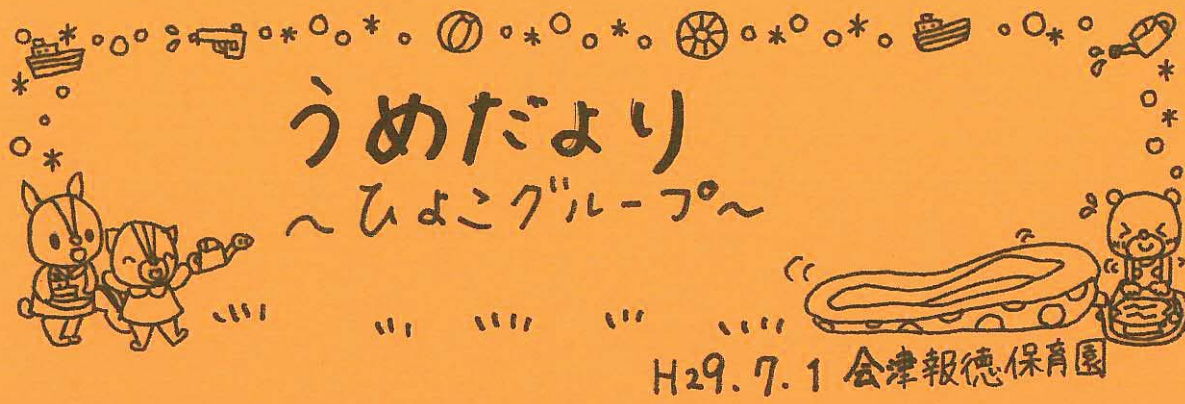 うめだより
～ひよこグループ～
H29.7.1 会津報徳保育園